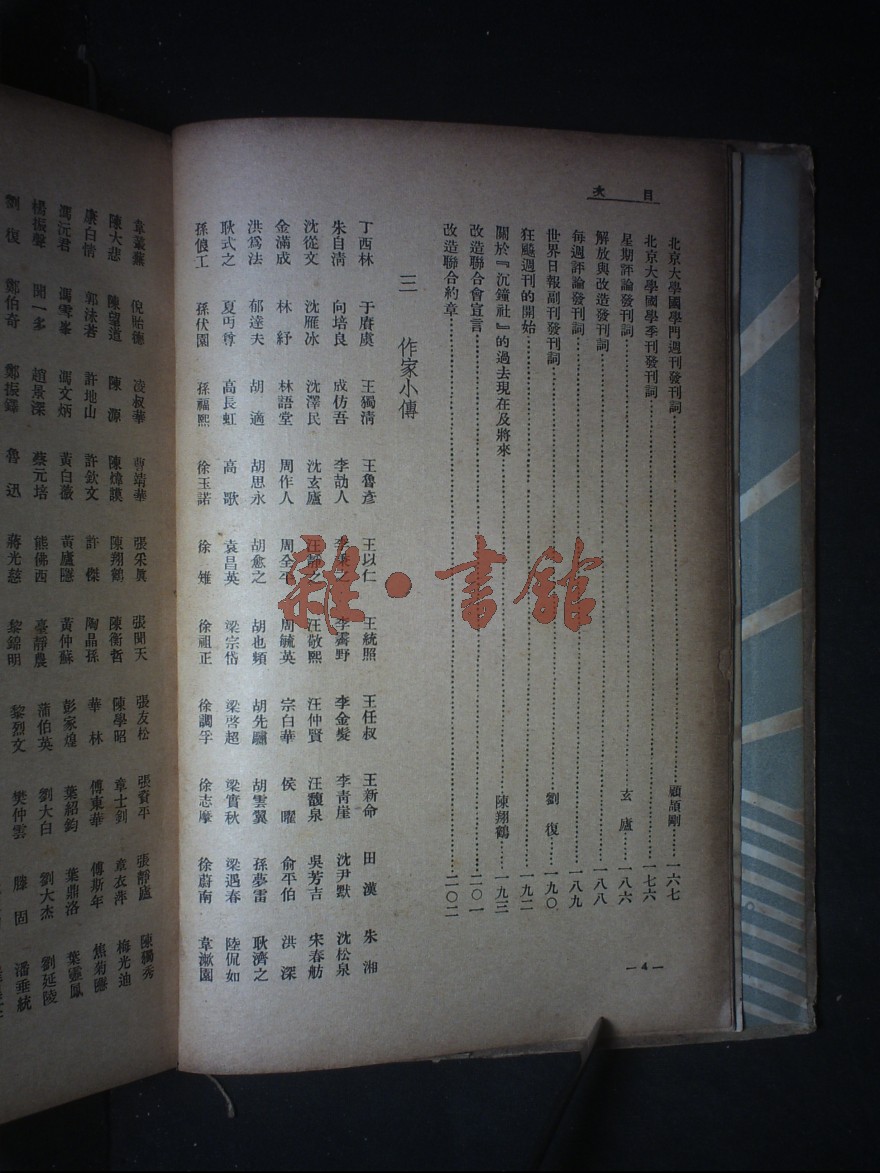 目次
北京大學國學門週刊發刊詞……顧頡剛……一六七
北京大學國學季刊發刊詞……一七六
星期評論發刊詞……玄廬……一八六
解放與改造發刊詞……一八八
每週評論發刊詞……一八九
世界日報副刊發刊詞……劉復……一九〇
狂飈週刊的開始……一九二
關於『沉鐘社』的過去現在及將來……陳翔鶴……一九三
改造聯合會宣言……二〇一
改造聯合約章……二〇二
三 作家小傳
丁西林 于賡虞 王獨清 王魯彥 王以仁 王統照 王任叔 王新命 田漢 朱湘
朱自清 向培良 成仿吾 李劼人 李秉之 李霽野 李金髮 李青崖 沈尹默 沈松泉
沈從文 沈雁冰 沈澤民 沈玄廬 汪靜之 汪敬熙 汪仲賢 汪馥泉 吳芳吉 宋春舫
金滿成 林紓 林語堂 周作人 周全平 周毓英 宗白華 侯曜 俞平伯 洪深
洪爲法 郁達夫 胡適 胡思永 胡愈之 胡也頻 胡先驌 胡雲翼 孫夢雷 耿濟之
耿式之 夏丏尊 高長虹 高歌 袁昌英 梁宗岱 梁啓超 梁實秋 梁遇春 陸侃如
孫俍工 孫伏園 孫福熙 徐玉諾 徐雉 徐祖正 徐調孚 徐志摩 徐蔚南 韋漱園
—4—
韋叢蕪 倪貽德 凌叔華 曹靖華 張采眞 張聞天 張友松 張資平 張靜廬 陳獨秀
陳大悲 陳望道 陳源 陳煒謨 陳翔鶴 陳衡哲 陳學昭 章士釗 章衣萍 梅光迪
康白情 郭沫若 許地山 許欽文 許傑 陶晶孫 華林 傅東華 傅斯年 焦菊隱
馮沅君 馮雪峯 馮文炳 黃白薇 黃廬隱 黃仲蘇 彭家煌 葉紹鈞 葉鼎洛 葉靈鳳
楊振聲 聞一多 趙景深 蔡元培 熊佛西 臺靜農 蒲伯英 劉大白 劉大杰 劉延陵
劉復 鄭伯奇 鄭振鐸 魯迅 蔣光慈 黎錦明 黎烈文 樊仲雲 滕固 潘垂統
雜·書館